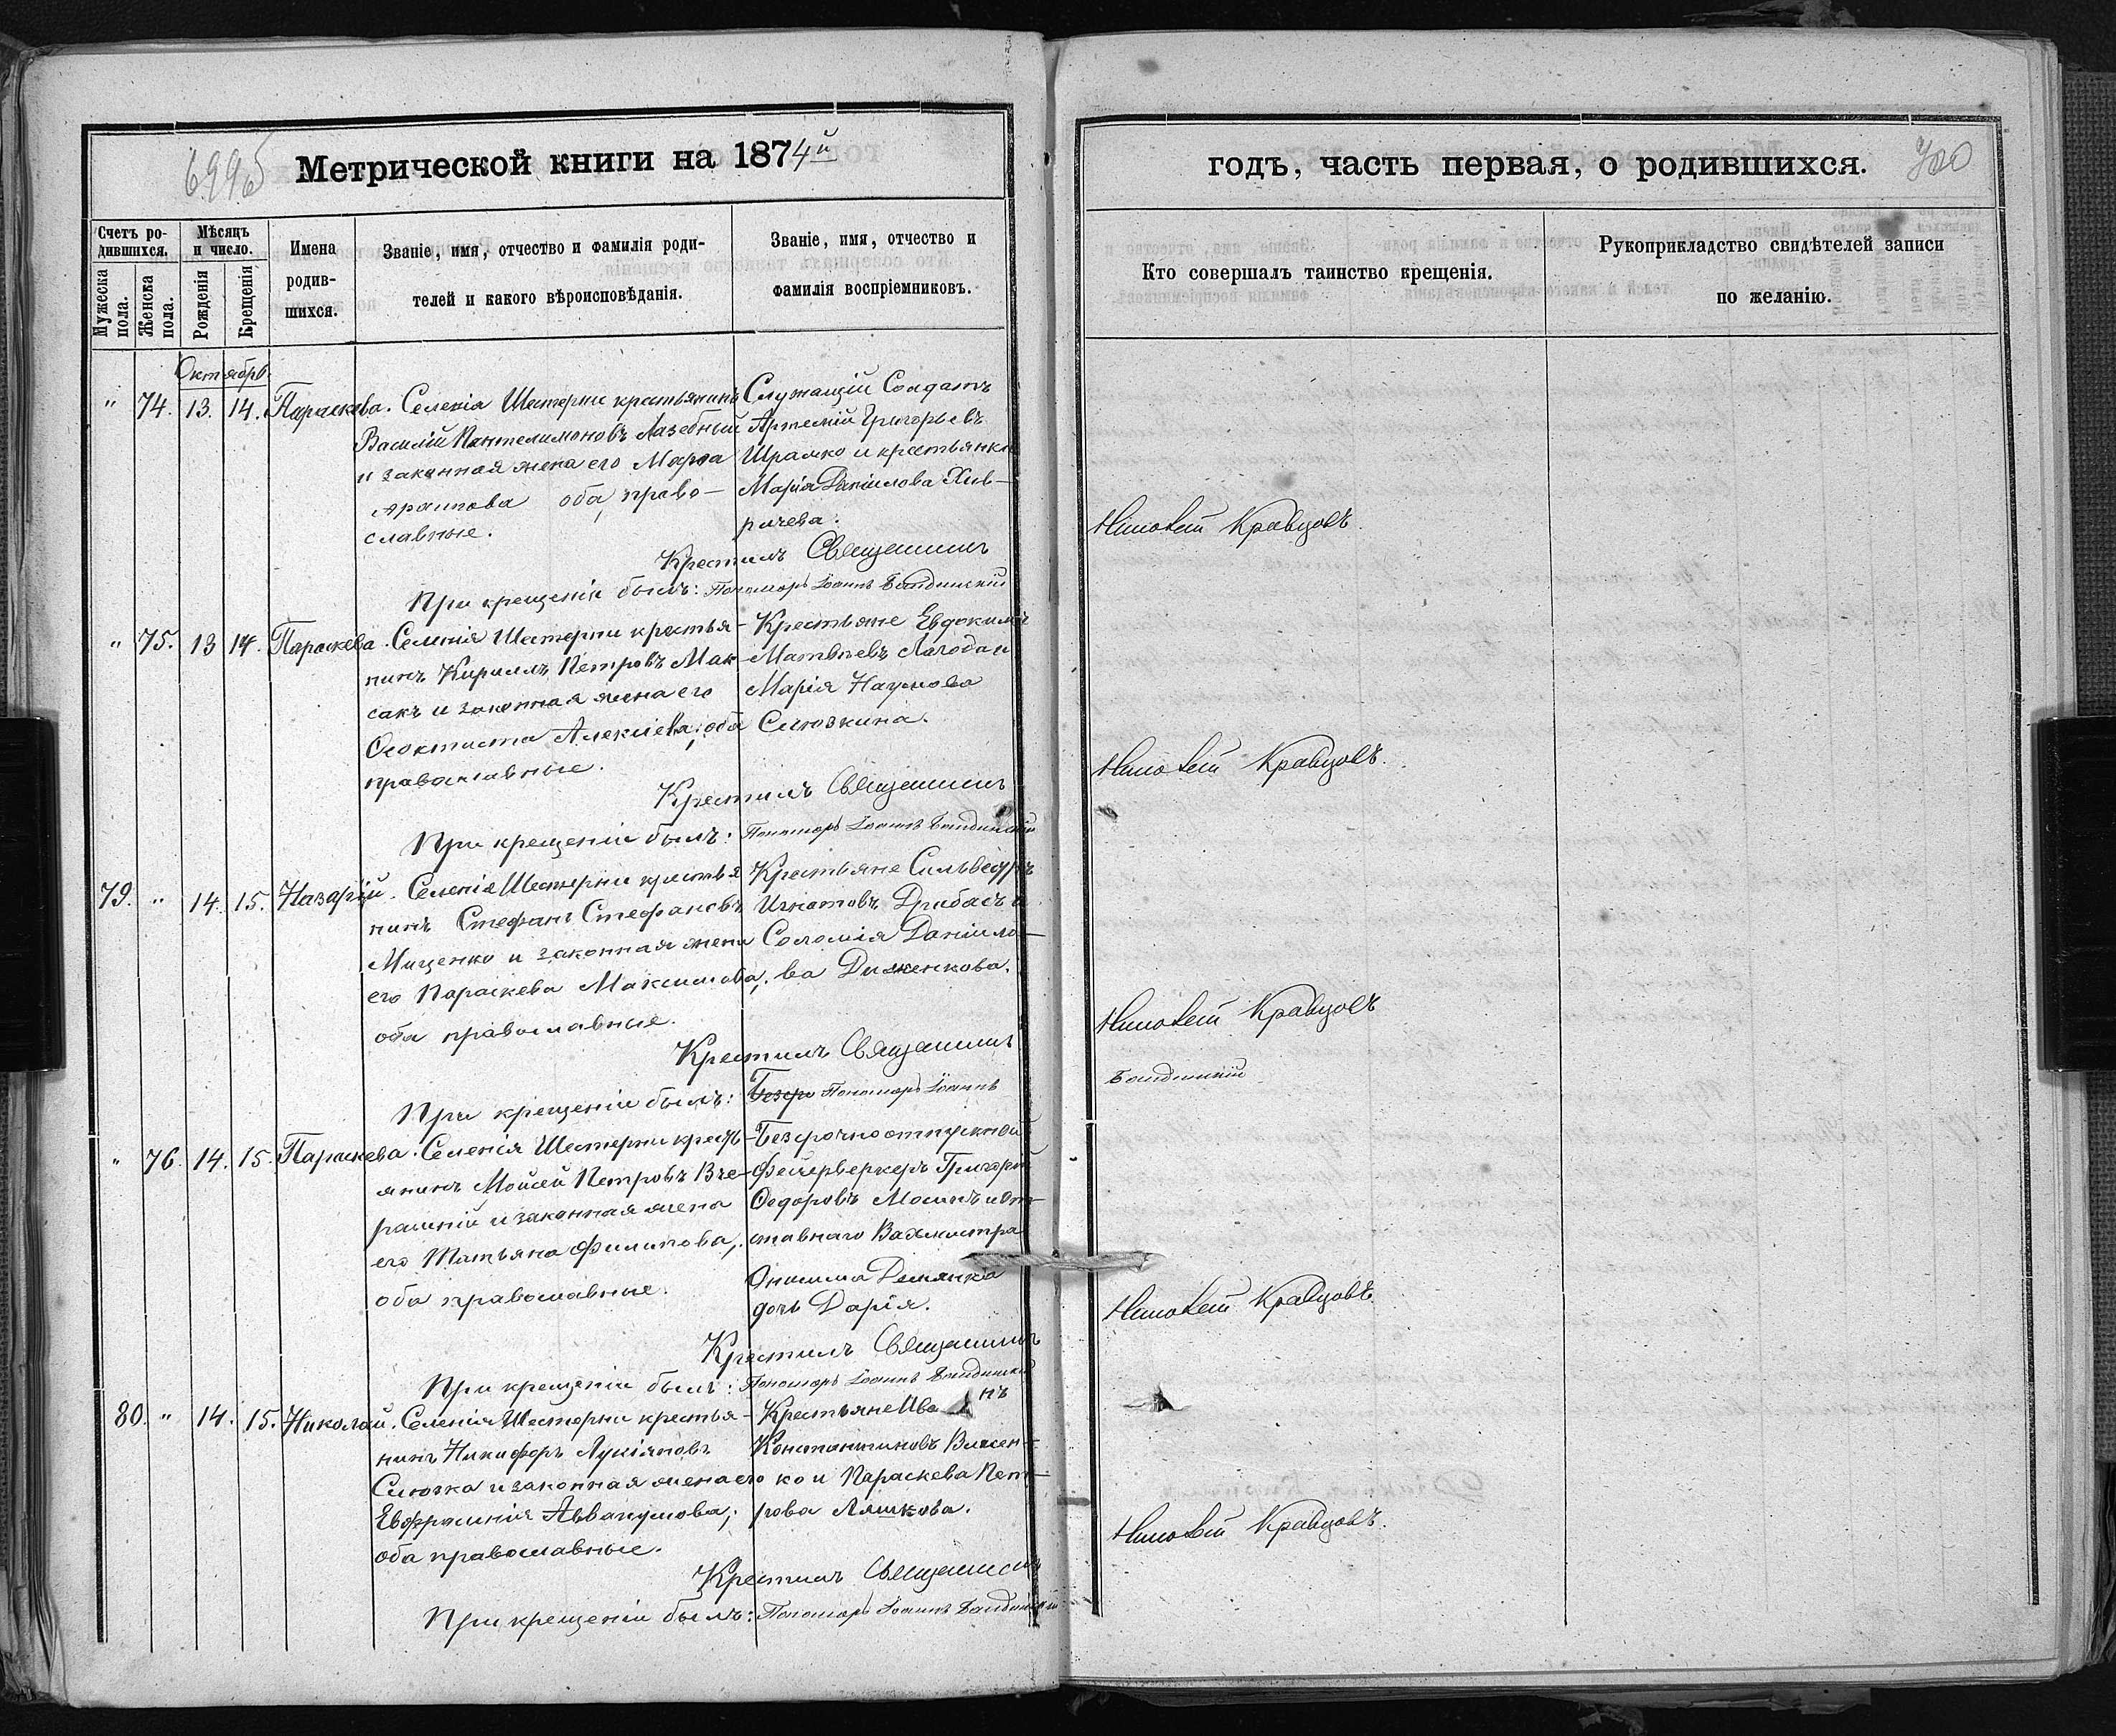 699об
Метрической книги на 1874й
годъ, часть первая, о родившихся.
700
Счетъ родившихся.
Мужеска пола.
Женска пола.
Мѣсяцъ и число.
Рожденія
Крещенія
Имена родив-
шихся.
Званіе, имя, отчество и фамилія роди-
телей и какого вѣроисповѣданія.
Званіе, имя, отчество и
фамилія воспріемниковъ.
Кто совершалъ таинство крещенія.
Рукоприкладство свидѣтелей записи
по желанію.
Октябрь.
" 74. 13. 14. Параскева. Селенія Шестерни крестьянинъ
Василій Пантелимоновъ Лазебный
и законная жена его Марѳа
оба право-
славные.
Служащій Солдатъ
Артемій Григорьевъ
Шрамко и крестьянка
Марія Даніилова Хив-
ричева.
Крестилъ Священникъ
Кравцовъ.
При крещеніи былъ: Пономарь Іоаннъ
" 75. 13 14. Параскева. Селенія Шестерни крестья-
нинъ Кириллъ Петровъ Мак-
сакъ и законная жена его
Ѳеоктиста Алексіева; оба
православные.
Крестьяне Евдокимъ
Матвѣевъ Лагода и
Марія Наумова
Слюзкина.
Крестилъ Священникъ
Кравцовъ.
При крещеніи былъ: Пономарь Іоаннъ
79. " 14. 15. Назарій. Селенія Шестерни крестья
нинъ Стефанъ Стефановъ
Мищенко и законная жена
его Параскева Максимова;
оба православные.
Крестьяне Сильвестръ
Игнатовъ Дрибасъ и
Соломія Даніило-
ва Диженкова.
Крестилъ Священникъ
Кравцовъ
При крещеніи былъ: Пономарь Іоаннъ
" 76. 14. 15. Параскева. Селенія Шестерни кресть-
янинъ Мойсей Петровъ Вче-
рашній и законная жена
его Татьяна Филипова;
оба православные.
Безсрочноотпускной
Фейерверкеръ Григорій
Ѳедоровъ и От-
ставнаго Вахмистра
Онисима
дочь Дарія.
Крестилъ Священникъ
Кравцовъ.
При крещеніи былъ: Пономарь Іоаннъ
80. " 14. 15. Николай. Селенія Шестерни крестья-
нинъ Никифоръ Лукіяновъ
Слючка и законная жена его
Евфросинія Аввакумова;
оба православные.
Крестьяне Иванъ
Константиновъ Власен-
ко и Параскева Пет-
рова Ляшкова.
Крестилъ Священникъ
Кравцовъ.
При крещеніи былъ: Пономарь Іоаннъ